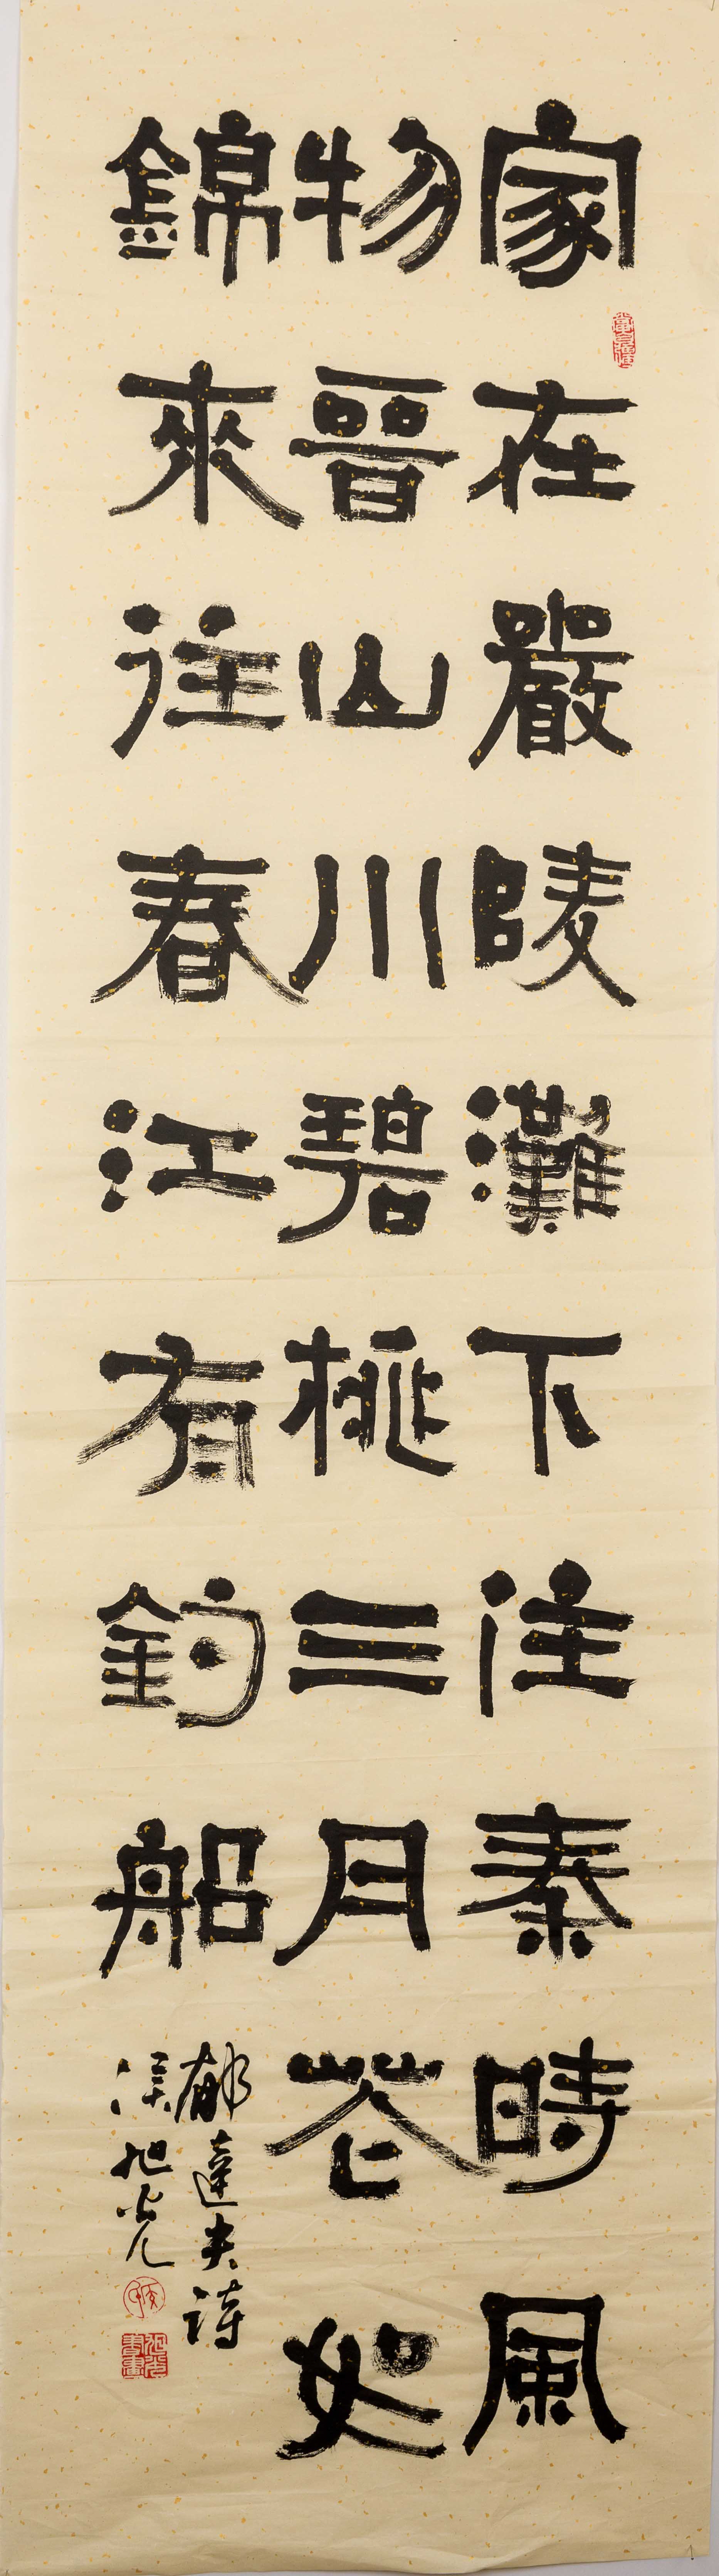 家在嚴陵灘下住秦時風
物晉山川碧桃三月花如
錦來往春江有釣船
郁達夫詩
旭光
旭光書畫